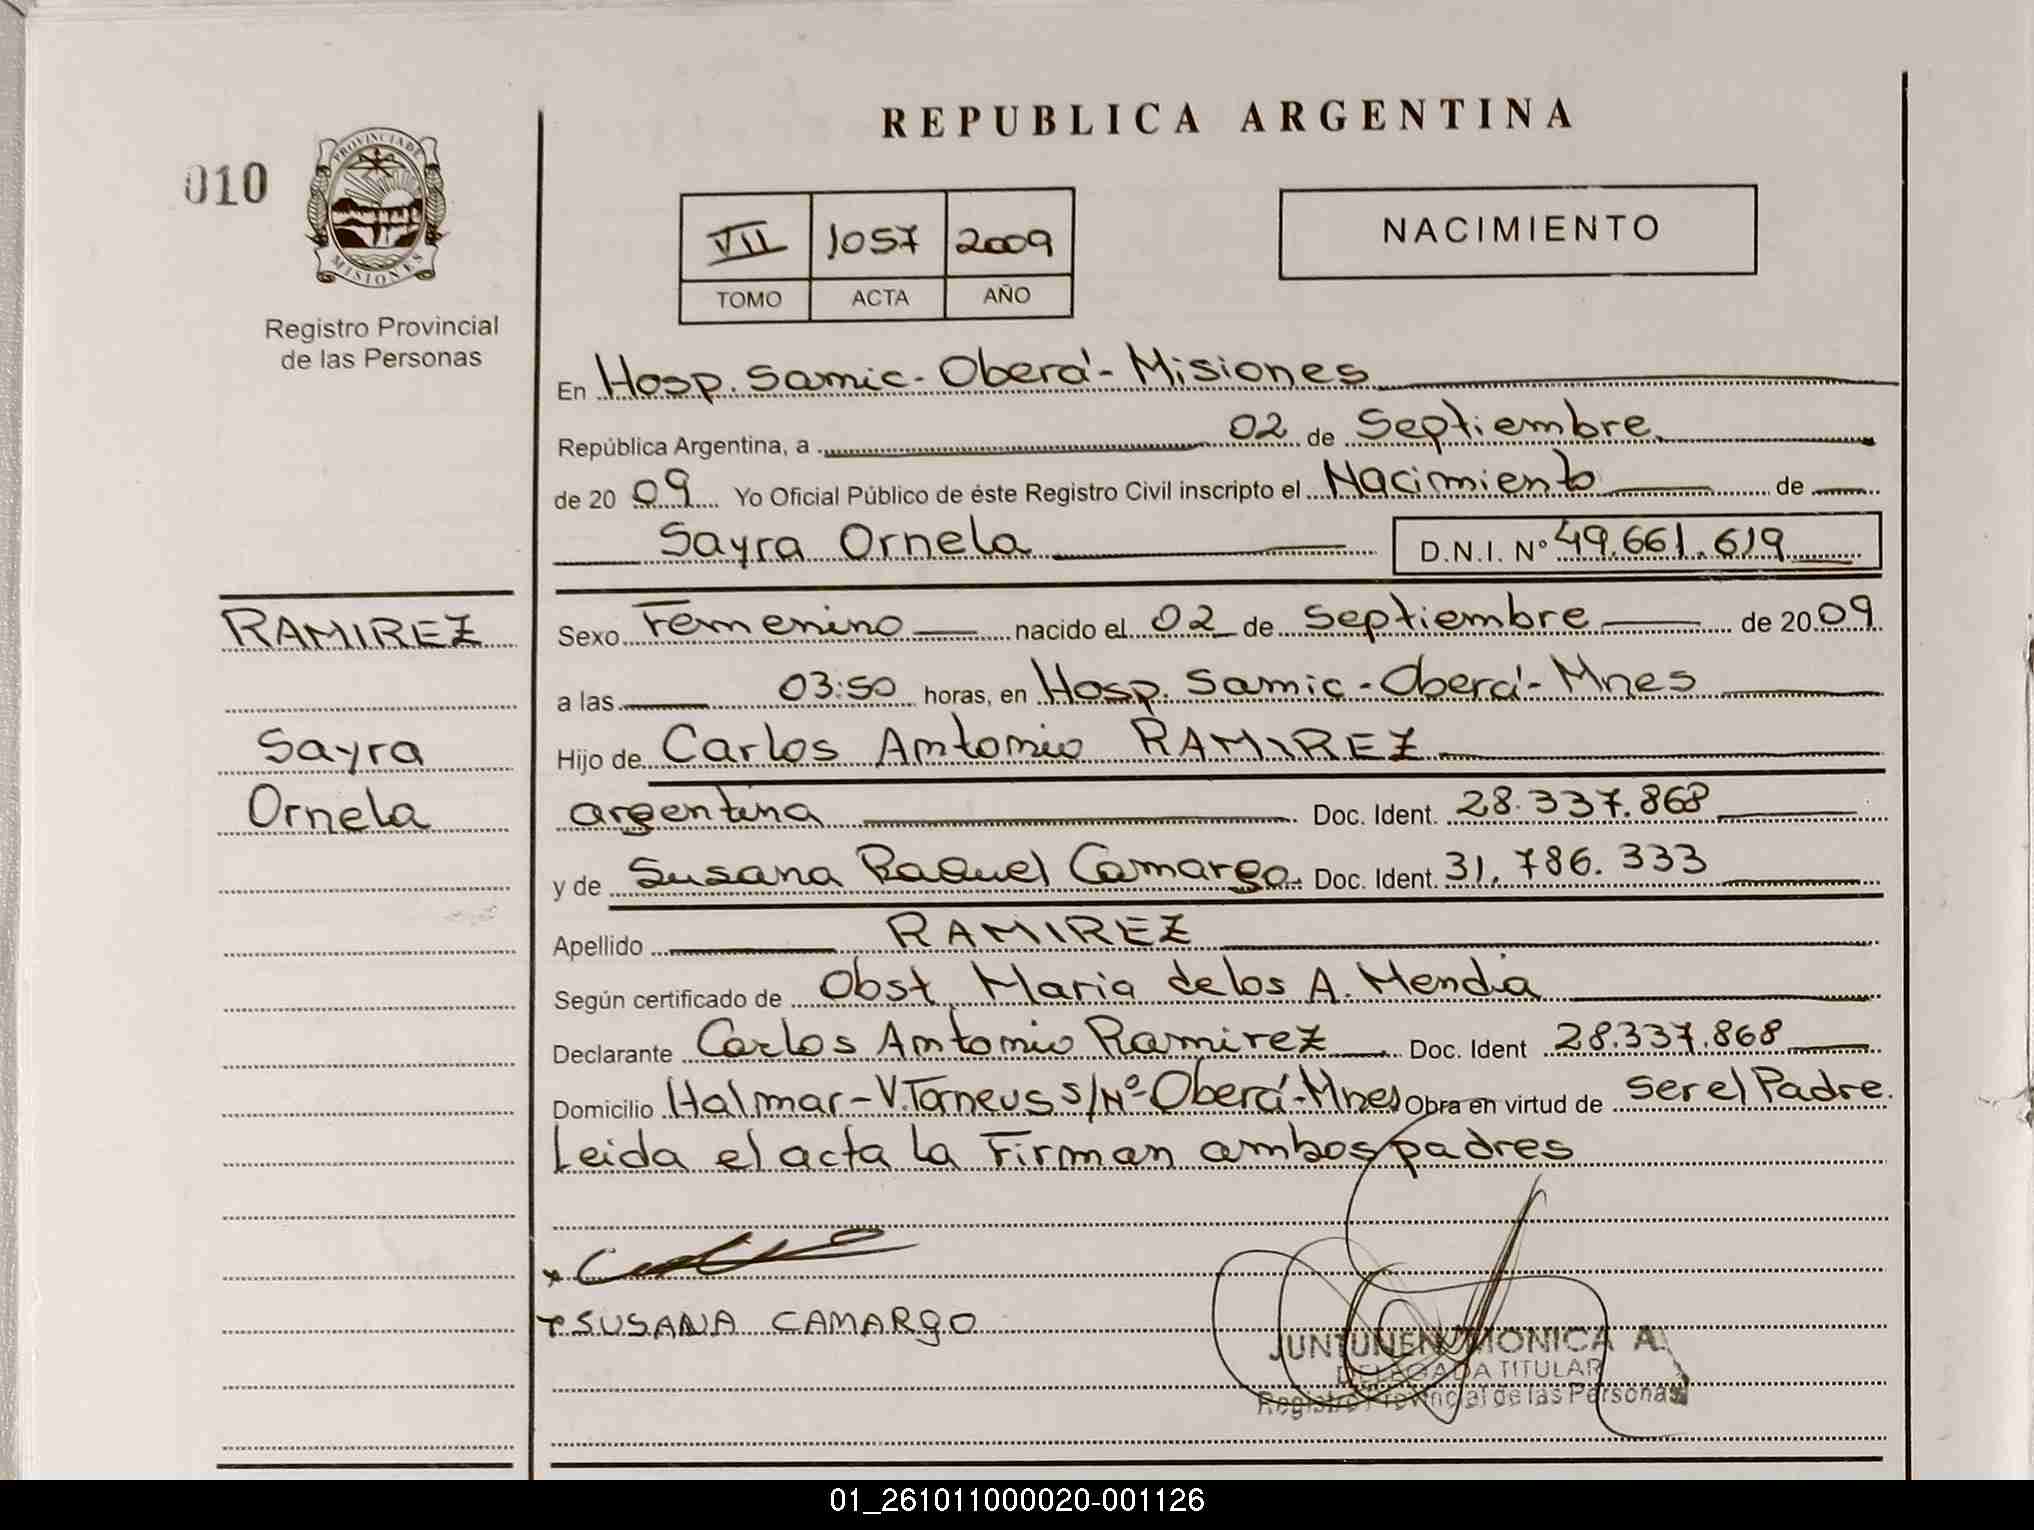 REPUBLICA ARGENTINA
010
PROVINCIA DE
MISIONES
Registro Provincial
de las Personas
VII 1057 2009
TOMO ACTA AÑO
NACIMIENTO
En Hosp. Samic - Oberá - Misiones
República Argentina, a 02 de Septiembre
de 20 09 Yo Oficial Público de éste Registro Civil inscripto el Nacimiento de
Sayra Ornela D.N.I. Nº 49.661.619
RAMIREZ
Sayra
Ornela
Sexo Femenino nacido el 02 de Septiembre de 20 09
a las 03:50 horas, en Hosp. Samic - Oberá - Mnes
Hijo de Carlos Antonio RAMIREZ
argentina Doc. Ident. 28.337.868
y de Susana Raquel Camargo. Doc. Ident. 31.786.333
Apellido RAMIREZ
Según certificado de Obst Maria delos A. Mendia
Declarante Carlos Antonio Ramirez Doc. Ident 28.337.868
Domicilio Halmar - V. Torneus s/Nº - Oberá - Mnes Obra en virtud de ser el Padre.
Leida el acta la Firman ambos padres
SUSANA CAMARGO
JUNTUNEN MONICA A.
DELEGADA TITULAR
Registro Provincial de las Personas
01_261011000020-001126